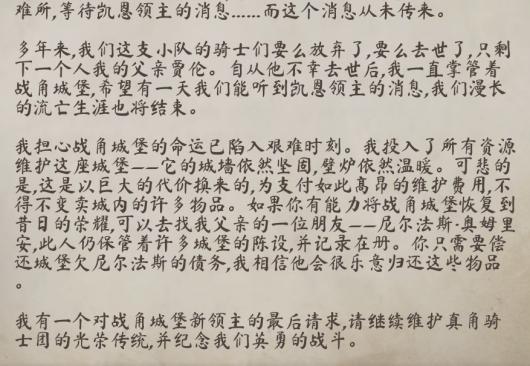 难所,等待凯恩领主的消息……而这个消息从未传来。
多年来,我们这支小队的骑士们要么放弃了,要么去世了,只剩
下一个人我的父亲贾伦。自从他不幸去世后,我一直掌管着
战角城堡,希望有一天我们能听到凯恩领主的消息,我们漫长
的流亡生涯也将结束。
我担心战角城堡的命运已陷入艰难时刻。我投入了所有资源
维护这座城堡——它的城墙依然坚固,壁炉依然温暖。可悲的
是,这是以巨大的代价换来的,为支付如此高昂的维护费用,不
得不变卖城内的许多物品。如果你有能力将战角城堡恢复到
昔日的荣耀,可以去找我父亲的一位朋友——尼尔法斯·奥姆里
安,此人仍保管着许多城堡的陈设,并记录在册。你只需要偿
还城堡欠尼尔法斯的债务,我相信他会很乐意归还这些物品
。
我有一个对战角城堡新领主的最后请求,请继续维护真角骑
士团的光荣传统,并纪念我们英勇的战斗。